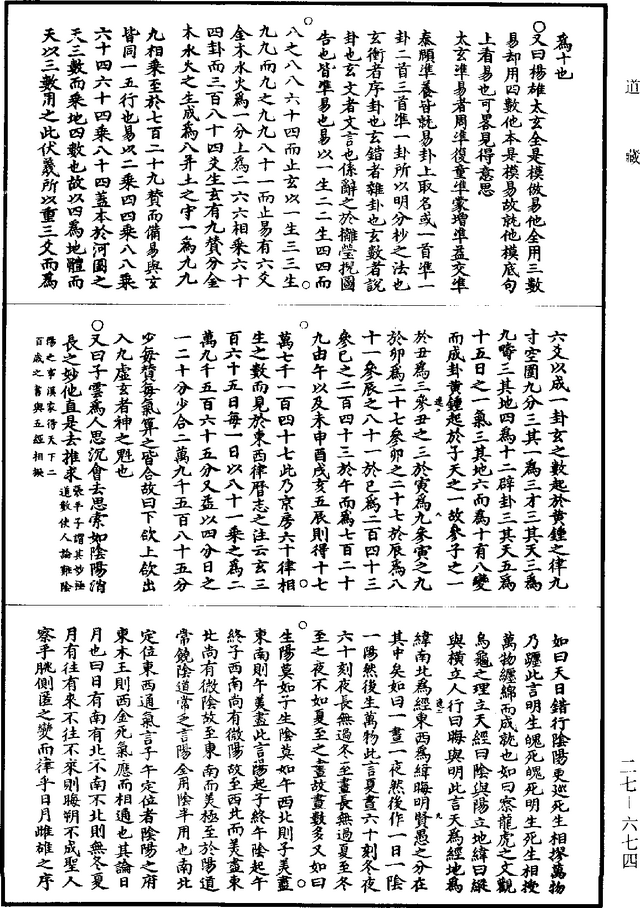 道藏
為十也
○又曰楊雄太玄全是模倣易他全用三數
易却用四數他本是模易故就他模底句
上看易也可畧見得意思
太玄準易者周準復童準蒙增準益交準
泰頤準養皆就易卦上取名或一首準一
卦二首三首準一卦所以明分杪之法也
玄衝者序卦也玄錯者雜卦也玄數者說
卦也玄文者文言也係辭之於攡瑩掜圖
告也皆準易也易以一生二二生四四而
八之八八六十四而止玄以一生三三生
九九而九之九九八十一而止易有六爻
金木水火為一分上為二六六相乘六十
四卦而三百八十四爻生玄有九贊分全
木水火之生成為八并土之守一為九九
九相乘至於七百二十九贊而備易與玄
皆同一五行也易以二乘四四乘八八乘
六十四六十四乘八十四蓋本於河圖之
天三數而乘地四數也故以四為地體而
天以三數用之此伏羲所以重三爻而為
六爻以成一卦玄之數起於黃鍾之律九
寸空圍九分三其一為三才三其天三為
九嚋三其地四為十二辟卦三其天五為
十五日之一氣三其地六而為十有八變
而成卦黃鍾起於子天之一故參子之一
於丑為三參丑之三於寅為九參寅之九
於卯為二十七參卯之二十七於辰為八
十一參辰之八十一於巳為二百四十三
參巳之二百四十三於午而為七百二十
九由午以及未申酉戌亥五辰則得十七
萬七千一百四十七此乃京房六十律相
生之數而見於東西律曆志之注云玄三
百六十五日每一日以八十一乘之為二
萬九千五百六十五分又益以四分日之
一二十分少合二萬九千五百八十五分
少每贊每氣算之皆合故曰下欲上欲出
入九虛玄者神之魁也
○又曰子雲為人思沉會去思索如陰陽消
長之妙他直是去推求張平子謂其妙極道數使人論難陰
陽之事漢家得天下二百歲之書與五經相擬
如曰天日錯行陰陽更巡死生相摎萬物
乃纏此言明生魄死魄死明生死生相摎
萬物纏綿而成就也如曰察龍虎之文觀
烏龜之理立天經曰陰與陽立地緯曰縱
與橫立人行曰晦與明此言天為經地為
緯南北為經東西為緯晦明賢愚之分在
其中矣如曰一晝一夜然後作一日一陰
一陽然後生萬物此言夏晝六十刻冬夜
六十刻夜長無過冬至晝長無過夏至冬
至之夜不如夏至之晝故晝數多又如曰
生陽莫如子生陰莫如午西北則子美盡
東南則午美盡此言陽起子終午陰起午
終子西南尚有微陽故至西北而美盡東
北尚有微陰故至東南而美極至於陽道
常饒陰道常乏言陽全用陰半用也南北
定位東西通氣言子午定位者陰陽之府
東木王則西金死氣應而相通也其論日
月也曰日有南有北不南不北則無冬夏
月有往有來不往不來則晦朔不成聖人
察乎朓側匿之變而律乎日月雌雄之序
二七—六七四